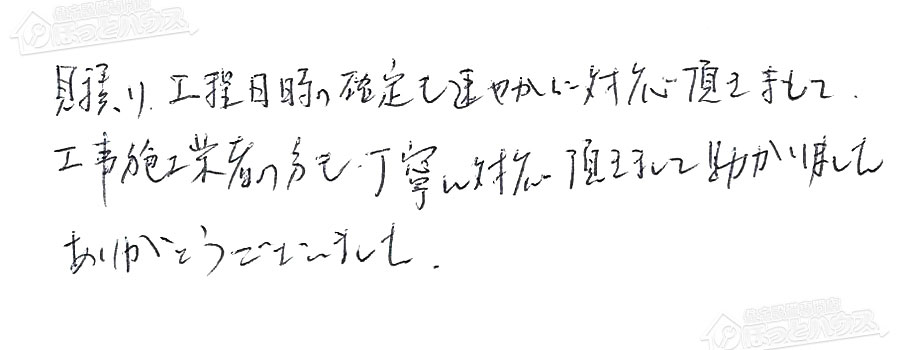 住宅設備専門店
ほっとハウス
見積り、工程日時の確定も速やかに対応頂きまして、
工事施工業者の方も丁寧に対応頂きまして助かりました
ありがとうございました。
住宅設備専門店
ほっとハウス